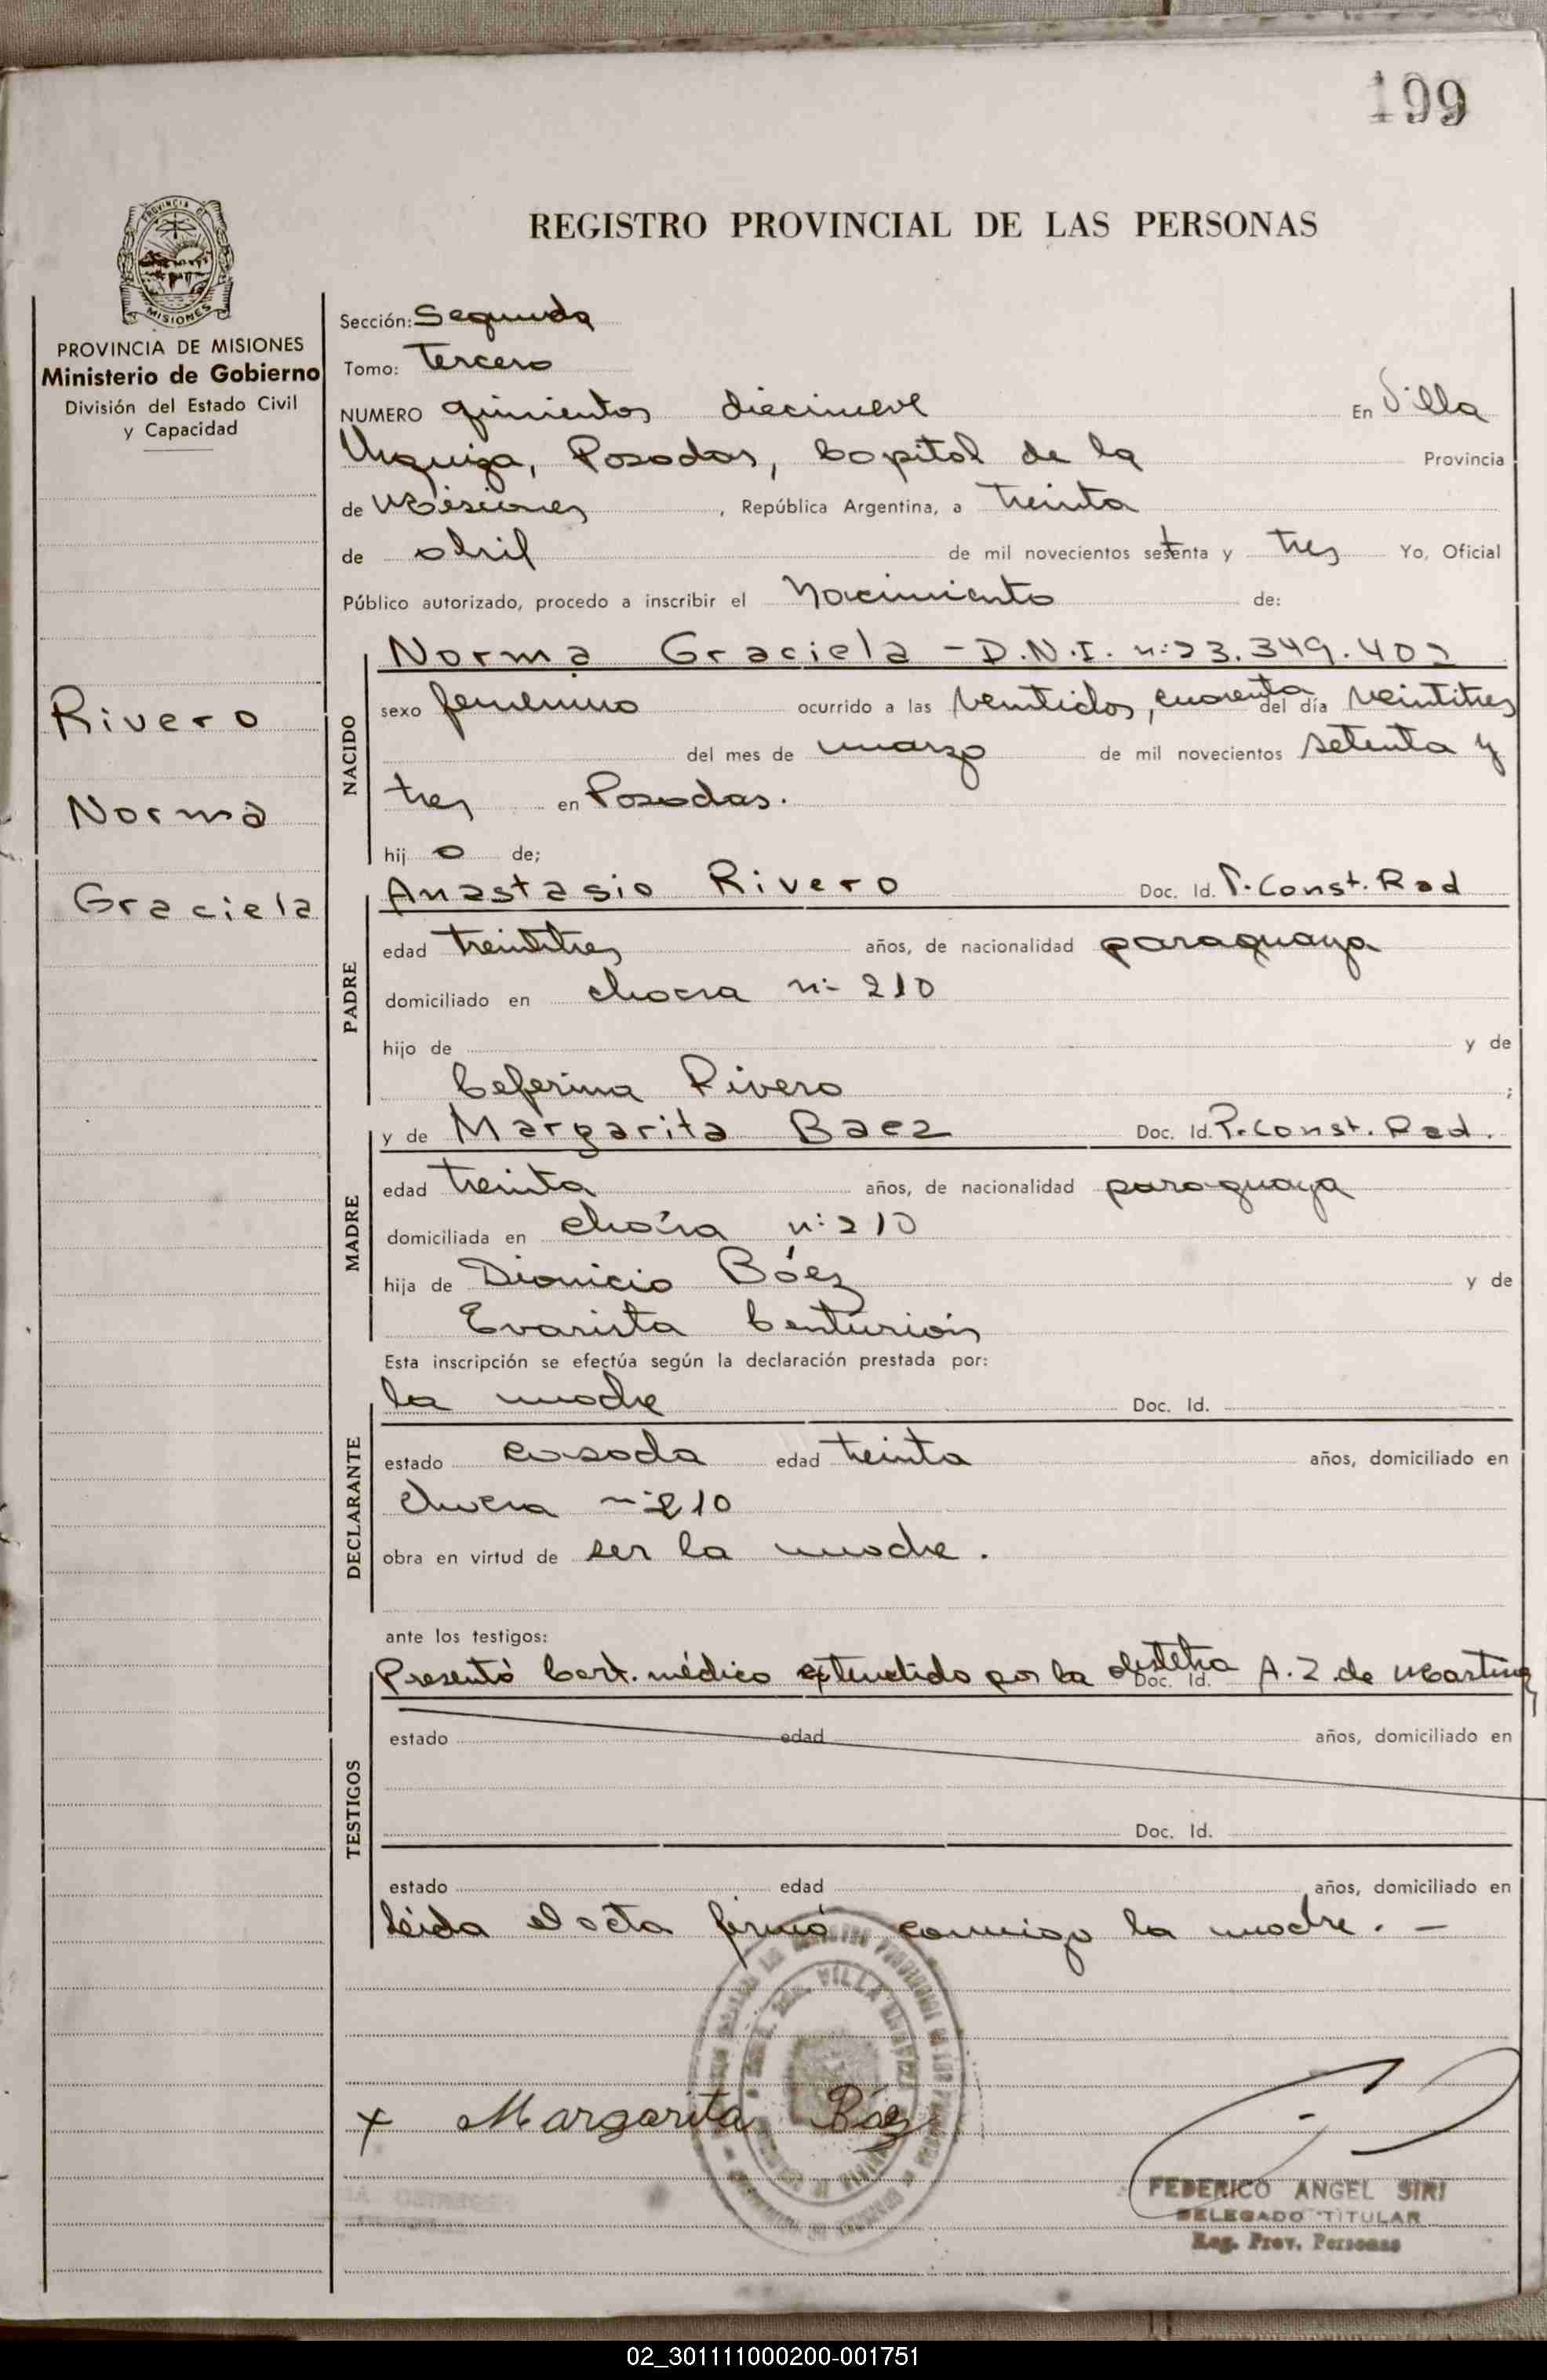 199
REGISTRO PROVINCIAL DE LAS PERSONAS
PROVINCIA DE MISIONES
MISIONES
PROVINCIA DE MISIONES
Ministerio de Gobierno
División del Estado Civil
y Capacidad
Rivero
Norma
Graciela
Sección: Segunda
Tomo: Tercero
NUMERO quinientos diecinueve En Villa
Urquiza, Posadas, Capital de la Provincia
de Misiones, República Argentina, a treinta
de abril de mil novecientos setenta y tres Yo, Oficial
Público autorizado, procedo a inscribir el Nacimiento de:
NACIDO
Norma Graciela - D.N.I. n: 23.349.402
sexo femenino ocurrido a las veintidos, cuarenta del día veintitres
del mes de marzo de mil novecientos setenta y
tres en Posadas.
hij a de;
PADRE
Anastasio Rivero Doc. Id. P. Const. Rad
edad treintitres años, de nacionalidad paraguaya
domiciliado en chacra n: 210
hijo de y de
Ceferina Rivero ;
MADRE
y de Margarita Baez Doc. Id. P. Const. Rad.
edad treinta años, de nacionalidad paraguaya
domiciliada en chacra n: 210
hija de Dionicio Báez y de
Evarista Centurión
Esta inscripción se efectúa según la declaración prestada por:
DECLARANTE
la madre Doc. Id.
estado casada edad treinta años, domiciliado en
chacra n: 210
obra en virtud de ser la madre.
ante los testigos:
TESTIGOS
Presentó Cert. médico extendido por la obstetra Doc. Id. A. Z de Martinez
estado edad años, domiciliado en
Doc. Id.
estado edad años, domiciliado en
Leida el acta firmó conmigo la madre. -
VILLA
x Margarita Báez
FEDERICO ANGEL SIRI
DELEGADO TITULAR
Reg. Prov. Personas
02_301111000200-001751